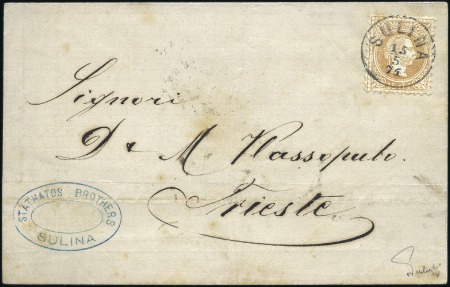 SULINA
15
5
75
Signori
D & M Vassopulo.
Trieste
STATHATOS BROTHERS
SULINA